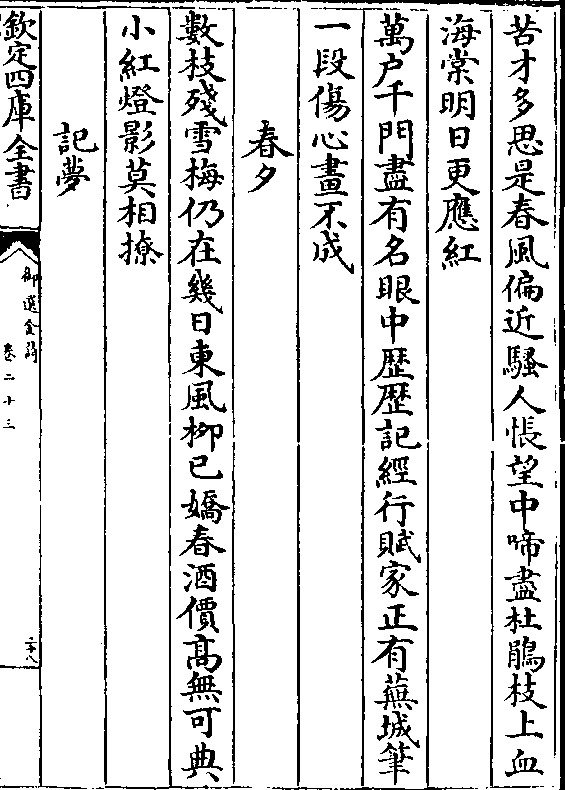 苦才多思是春風偏近騷人悵望中啼盡杜鵑枝上血
海棠明日更應紅
萬户千門盡有名眼中歴歴記經行賦家正有蕪城筆
一段傷心畫不成
春夕
數枝殘雪梅仍在幾日東風柳已嬌春酒價髙無可典
小紅燈影莫相撩
記夢
欽定四庫全書
御選金詩
卷二十三